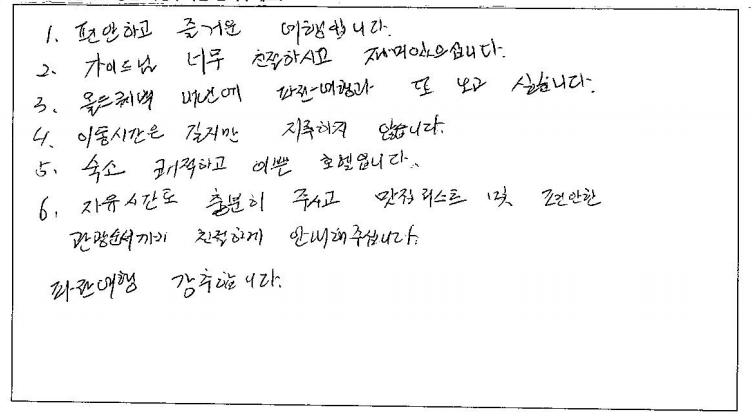 1. 편안하고 즐거운 여행입니다.
2. 가이드님 너무 친절하시고 재미있으십니다.
3. 올드퀘벡 내년에 파란여행과 또 보고 싶습니다.
4. 이동시간은 길지만 지루하지 않습니다.
5. 숙소 쾌적하고 이쁜 호텔입니다.
6. 자유시간도 충분히 주시고 맛집리스트 및 편안한
관광순서까지 친절하게 안내해주십니다.
파란여행 강추합니다.